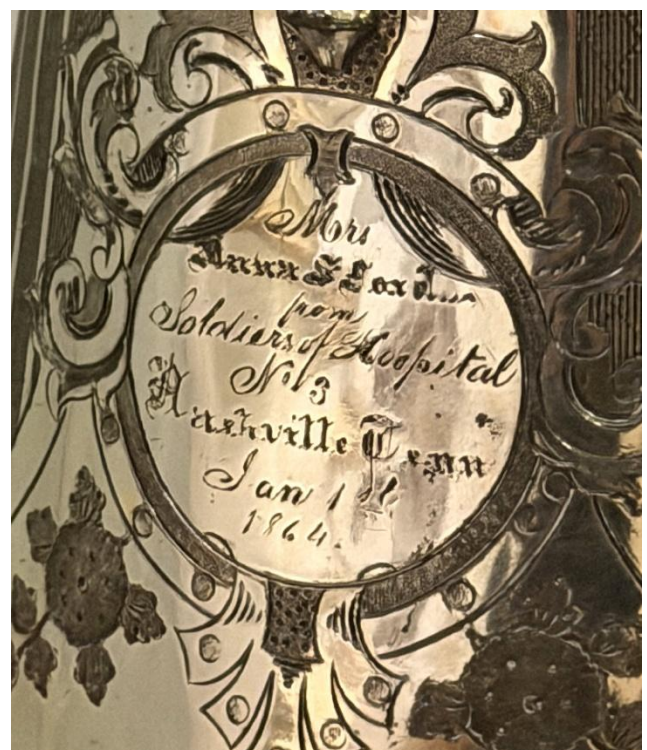 Mrs
Anna S
from
Soldiers of Hospital
No 3
Nashville Tenn
Jan 1st
1864.